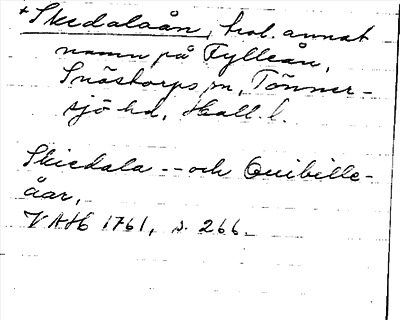 *Skedalaån, trol. annat
namn på Fylleån,
Snöstorps sn, Tönner-
sjö hd, Hall. l.
Skiedala -- och Quibille-
åar,
VAH 1761, s. 266.